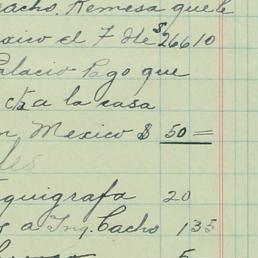 acho, Remesa que le
exico el 7 de $266 10
Palacio Pago que
cta a la casa
n Mexico $ 50 =
les
quigrafa 20
s a Ing. Cacho 135
5